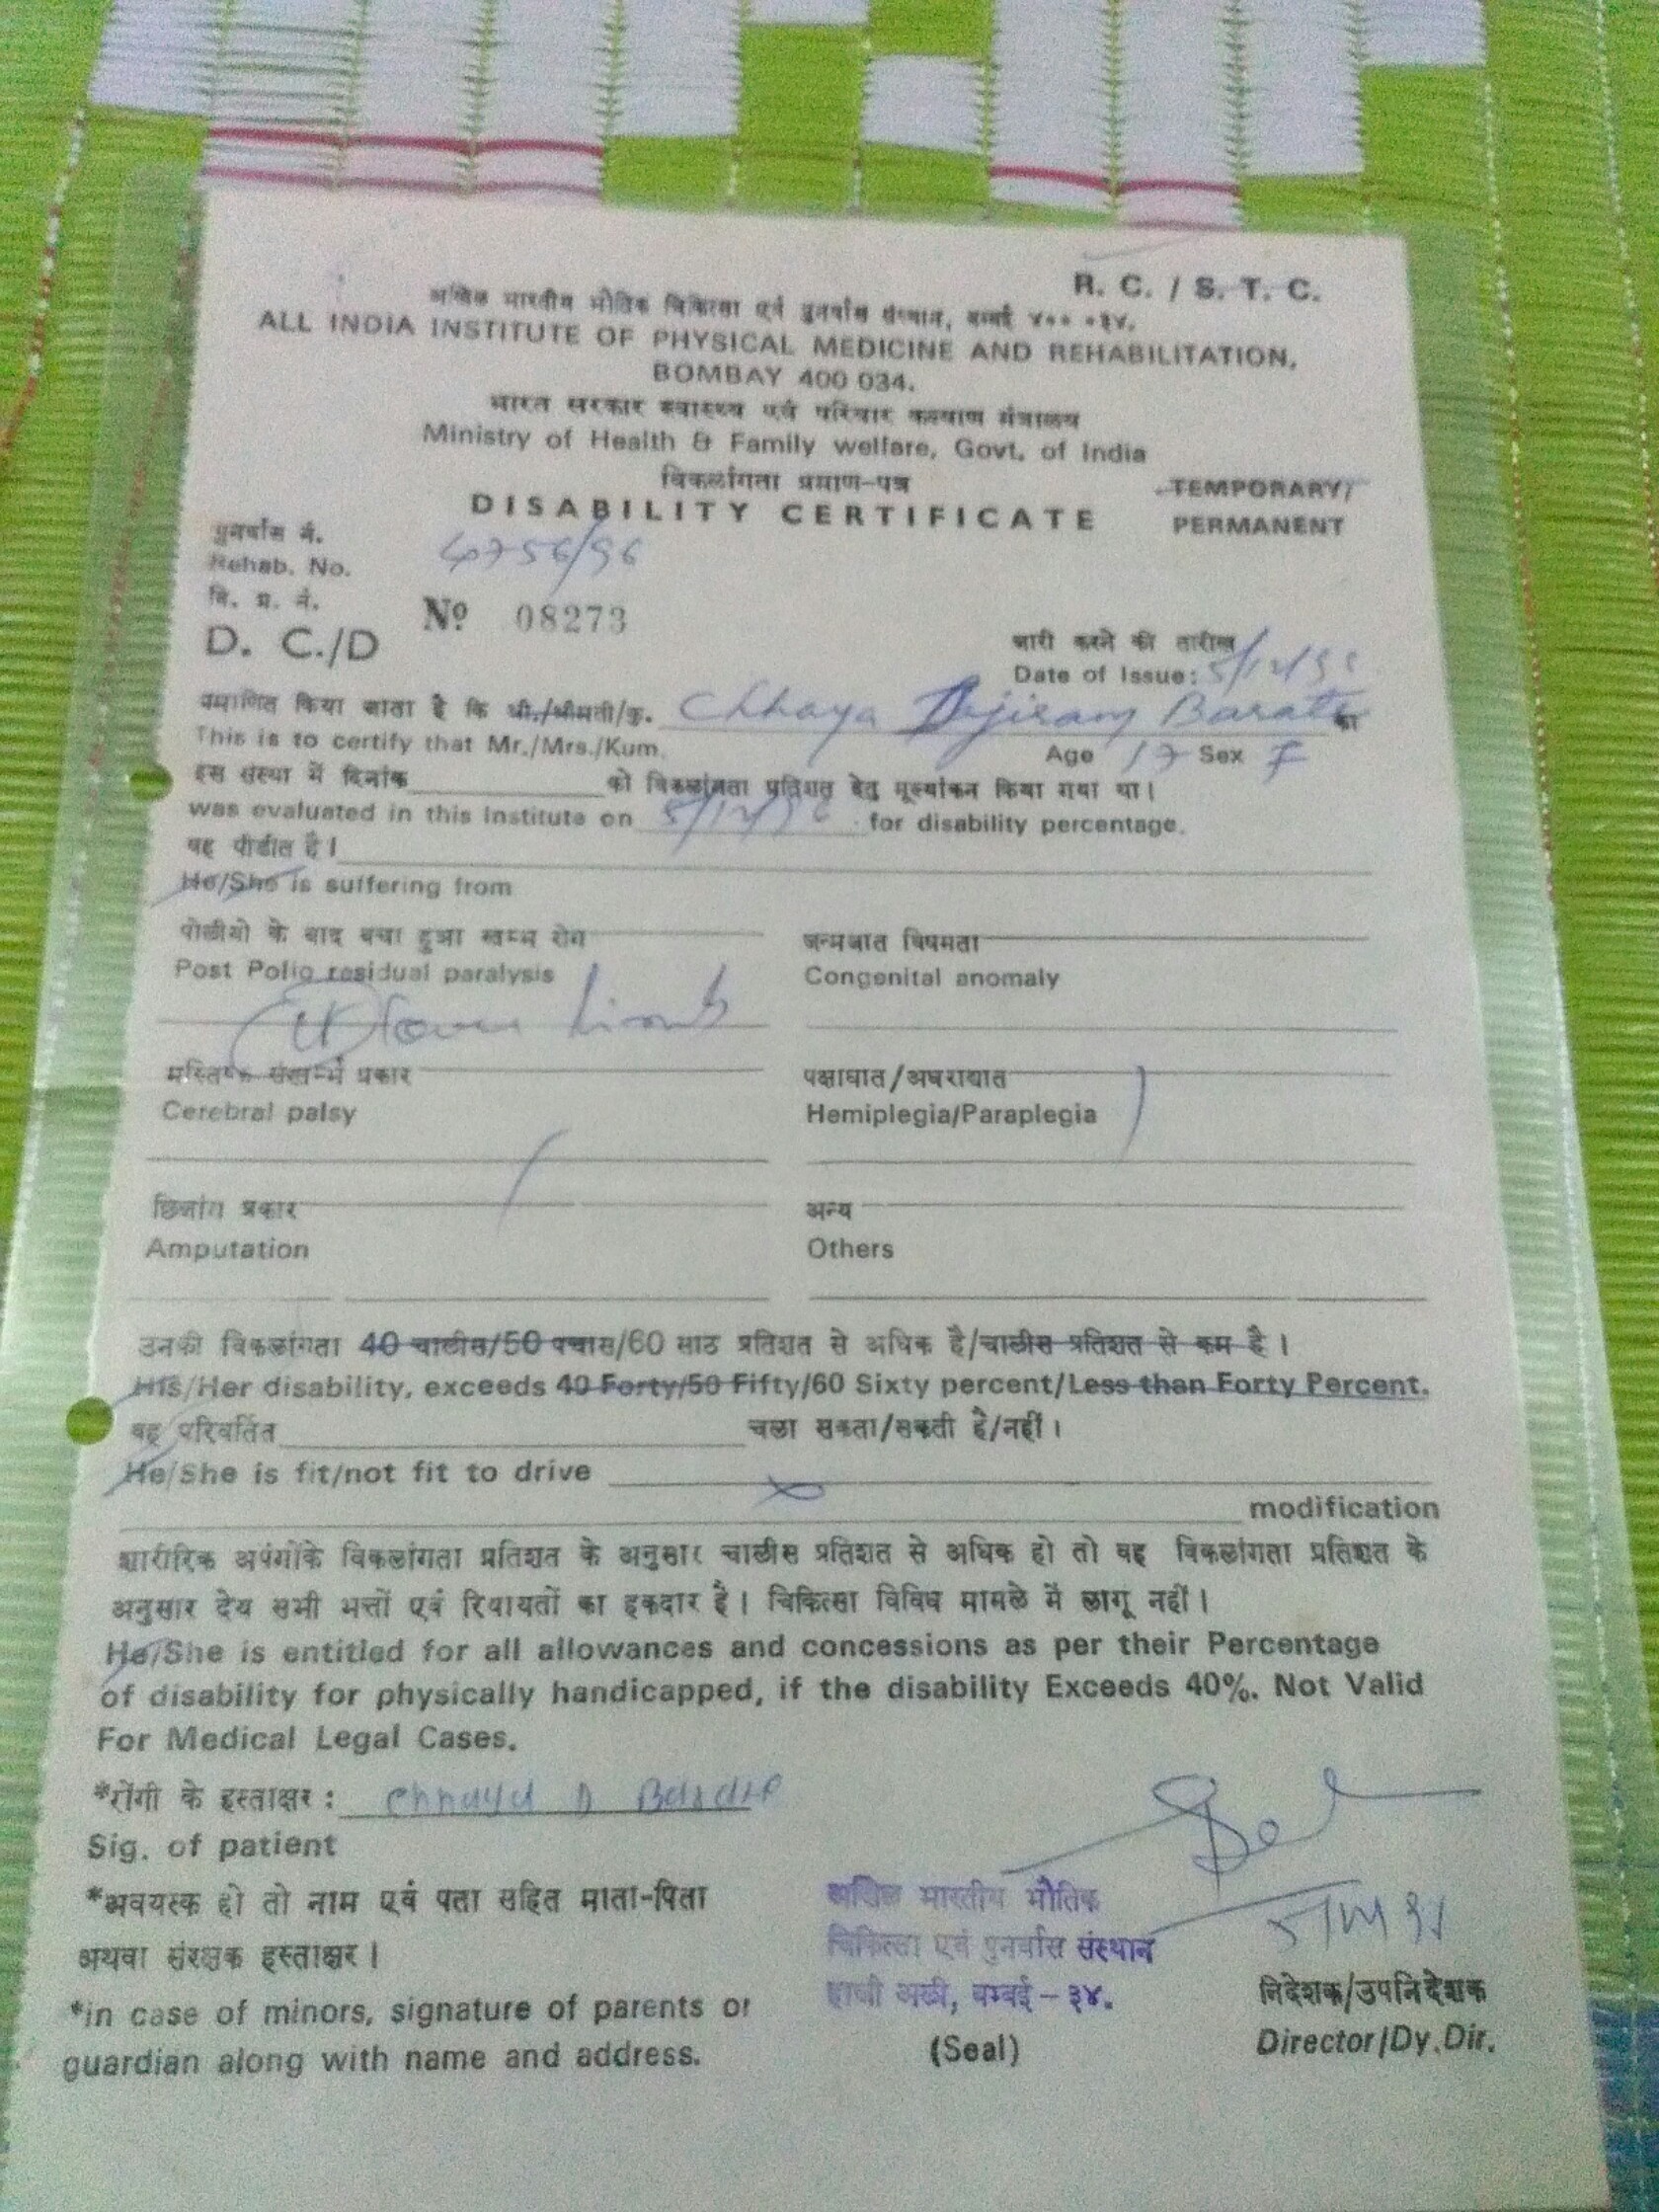 R. C. / S. T. C.
अखिल भारतीय भौतिक चिकित्सा एवं पुनर्वास संस्थान, बम्बई ४०० ०३४.
ALL INDIA INSTITUTE OF PHYSICAL MEDICINE AND REHABILITATION,
BOMBAY 400 034.
भारत सरकार स्वास्थ्य एवं परिवार कल्याण मंत्रालय
Ministry of Health & Family welfare, Govt. of India
विकलांगता प्रमाण-पत्र
TEMPORARY/
DISABILITY CERTIFICATE
PERMANENT
पुनर्वास नं.
Rehab. No. 4756/96
वि. प्र. नं.
D. C./D Nº 08273
जारी करने की तारीख
Date of Issue: 5/12/96
प्रमाणित किया जाता है कि श्री./श्रीमती/कु. Chhaya Barate का
This is to certify that Mr./Mrs./Kum. Age 17 Sex F
इस संस्था में दिनांक को विकलांगता प्रतिशत हेतु मूल्यांकन किया गया था।
was evaluated in this Institute on 5/12/96 for disability percentage.
वह पीडीत है।
He/She is suffering from
पोलीयो के बाद बचा हुआ स्तम्भ रोग
Post Polio residual paralysis
Limb
जन्मजात विषमता
Congenital anomaly
मस्तिष्क संस्तम्भ प्रकार
Cerebral palsy
पक्षाघात/अधराघात
Hemiplegia/Paraplegia
छिन्नांग प्रकार
Amputation
अन्य
Others
उनकी विकलांगता 40 चालीस/50 पचास/60 साठ प्रतिशत से अधिक है/चालीस प्रतिशत से कम है।
His/Her disability, exceeds 40 Forty/50 Fifty/60 Sixty percent/Less than Forty Percent.
वह परिवर्तित चला सकता/सकती है/नहीं।
He/She is fit/not fit to drive
modification
शारीरिक अपंगोंके विकलांगता प्रतिशत के अनुसार चालीस प्रतिशत से अधिक हो तो वह विकलांगता प्रतिशत के
अनुसार देय सभी भत्तों एवं रियायतों का हकदार है। चिकित्सा विविध मामले में लागू नहीं।
He/She is entitled for all allowances and concessions as per their Percentage
of disability for physically handicapped, if the disability Exceeds 40%. Not Valid
For Medical Legal Cases.
*रोंगी के हस्ताक्षर : Chhaya D Barate
Sig. of patient
*अवयस्क हो तो नाम एवं पता सहित माता-पिता
अथवा संरक्षक हस्ताक्षर।
*in case of minors, signature of parents or
guardian along with name and address.
अखिल भारतीय भौतिक
चिकित्सा एवं पुनर्वास संस्थान
हाजी अली, बम्बई - ३४.
(Seal)
निदेशक/उपनिदेशक
Director/Dy.Dir.